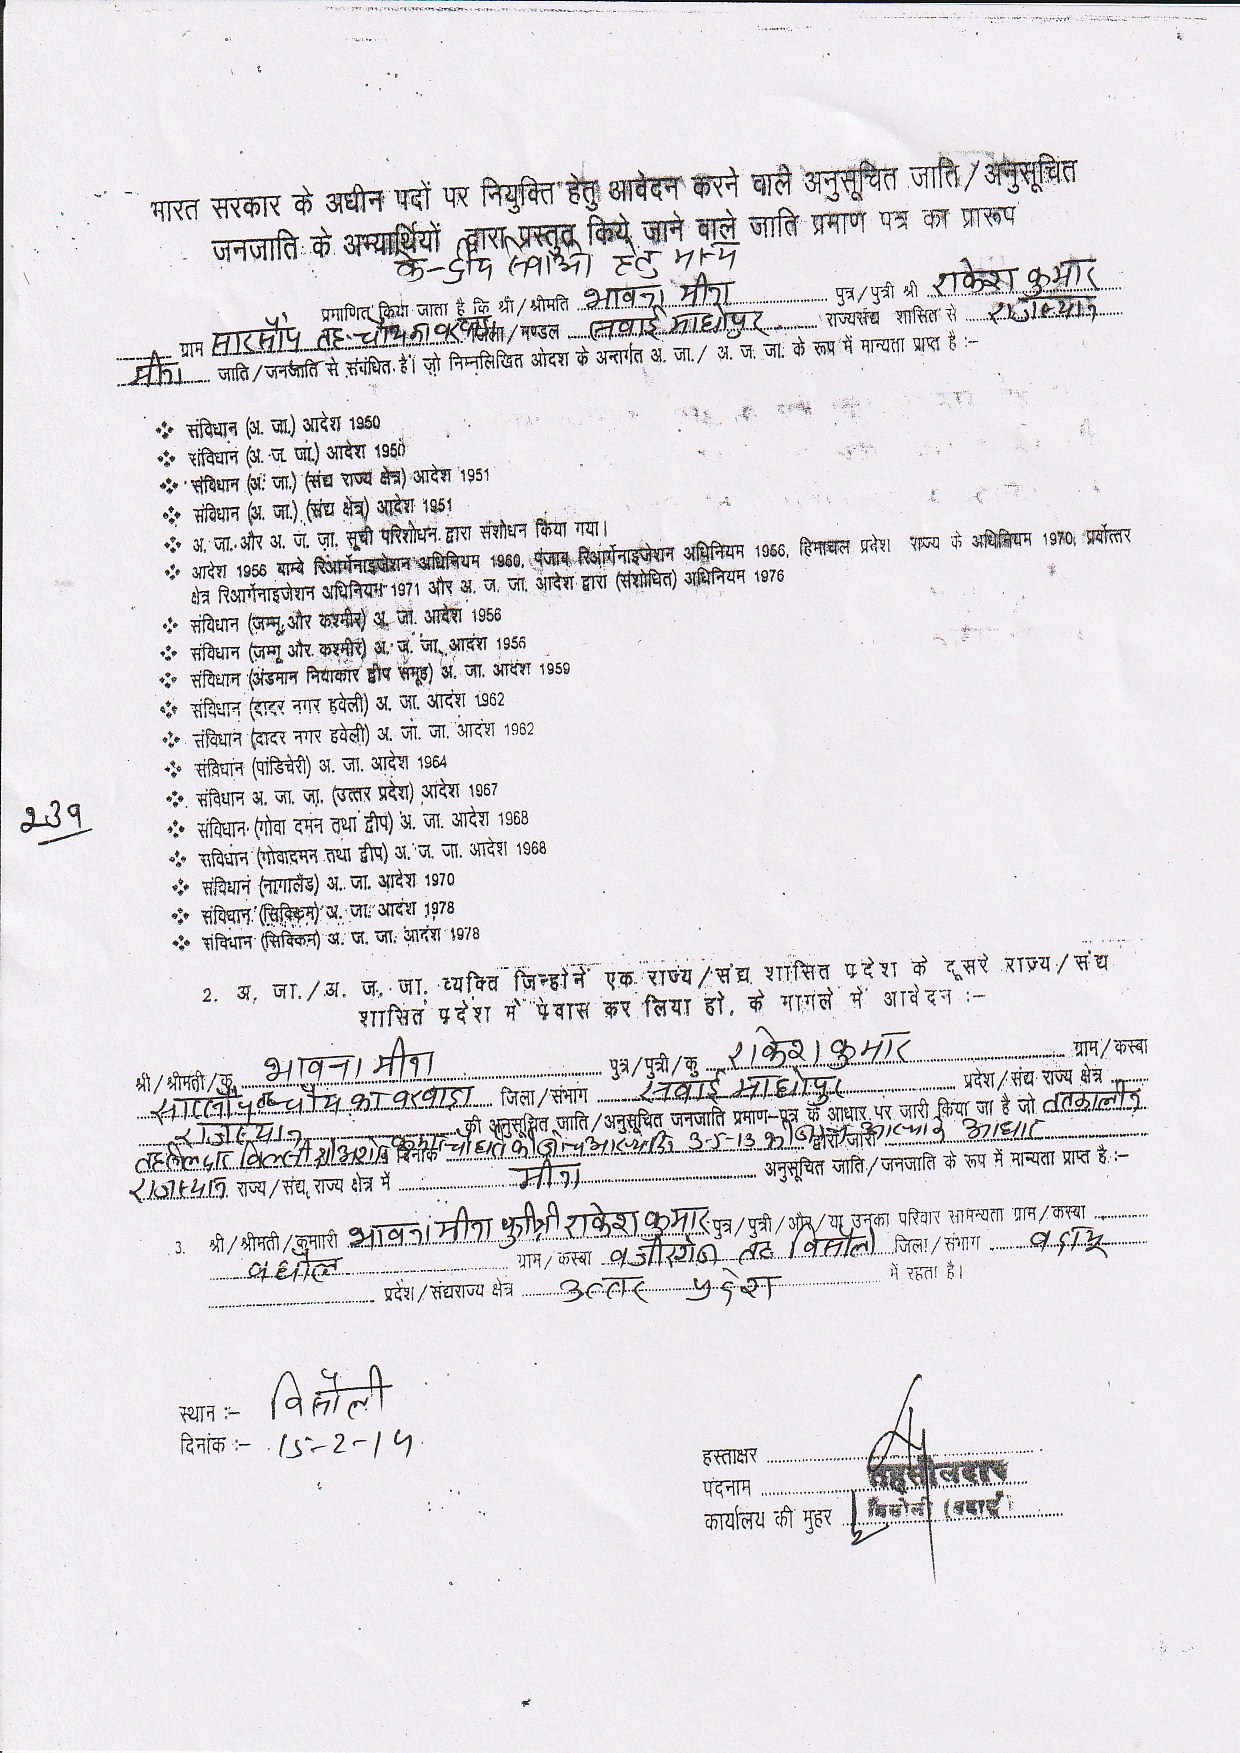 भारत सरकार के अधीन पदों पर नियुक्ति हेतु आवेदन करने वाले अनुसूचित जाति / अनुसूचित
जनजाति के अभ्यार्थियों द्वारा प्रस्तुत किये जाने वाले जाति प्रमाण पत्र का प्रारूप
केन्द्रीय सेवाओं हेतु मान्य
प्रमाणित किया जाता है कि श्री / श्रीमति भावना मीना पुत्र / पुत्री श्री राकेश कुमार
ग्राम सारसौप तह- चौथ का बरवाडा जिला / मण्डल सवाई माधोपुर राज्यसंघ शासित से राजस्थान
मीना जाति / जनजाति से संबंधित है। जो निम्नलिखित ओदश के अन्तर्गत अ. जा./ अ. ज. जा. के रूप में मान्यता प्राप्त है :-
❖ संविधान (अ. जा.) आदेश 1950
❖ संविधान (अ. ज. जा.) आदेश 1950
❖ संविधान (अ. जा.) (संद्य राज्य क्षेत्र) आदेश 1951
❖ संविधान (अ. जा.) (संद्य क्षेत्र) आदेश 1951
❖ अ. जा. और अ. ज. जा. सूची परिशोधन द्वारा संशोधन किया गया।
❖ आदेश 1956 बाम्बे रिआर्गेनाइजेशन अधिनियम 1960, पंजाब रिआर्गेनाइजेशन अधिनियम 1956, हिमाचल प्रदेश राज्य के अधिनियम 1970, प्रर्वोत्तर
क्षेत्र रिआर्गेनाइजेशन अधिनियम 1971 और अ. ज. जा. आदेश द्वारा (संशोधित) अधिनियम 1976
❖ संविधान (जम्मू और कश्मीर) अ. जा. आदेश 1956
❖ संविधान (जम्मू और कश्मीर) अ. ज. जा. आदंश 1956
❖ संविधान (अंडमान निद्याकार द्वीप समूह) अ. जा. आदंश 1959
❖ संविधान (दादर नगर हवेली) अ. जा. आदंश 1962
❖ संविधान (दादर नगर हवेली) अ. जा. जा. आदंश 1962
❖ संविधान (पांडिचेरी) अ. जा. आदेश 1964
❖ संविधान अ. जा. जा. (उत्तर प्रदेश) आदंश 1967
❖ संविधान (गोवा दमन तथा द्वीप) अ. जा. आदेश 1968
❖ संविधान (गोवादमन तथा द्वीप) अ. ज. जा. आदेश 1968
❖ संविधान (नागालैंड) अ. जा. आदेश 1970
❖ संविधान (सिक्किम) अ. जा. आदंश 1978
❖ संविधान (सिक्किम) अ. ज. जा. आदंश 1978
239
2. अ. जा./अ. ज. जा. व्यक्ति जिन्होनें एक राज्य / संद्य शासित प्रदेश के दूसरे राज्य / संद्य
शासित प्रदेश में प्रेवास कर लिया हो, के मागले में आवेदन :-
श्री / श्रीमती / कु. भावना मीना पुत्र / पुत्री / कु राकेश कुमार ग्राम / कस्बा
सारसौप तह चौथ का बरवाडा जिला / संभाग सवाई माधोपुर प्रदेश / संद्य राज्य क्षेत्र
राजस्थान की अनुसूचित जाति / अनुसूचित जनजाति प्रमाण-पत्र के आधार पर जारी किया जा है जो तत्कालीन
तहसीलदार दिनांक 3-5-13 द्वारा जारी आधार
राजस्थान राज्य / संद्य राज्य क्षेत्र में मीना अनुसूचित जाति / जनजाति के रूप में मान्यता प्राप्त है :-
3. श्री / श्रीमती / कुमाारी भावना मीना पुत्री श्री राकेश कुमार पुत्र / पुत्री / और / या उनका परिवार सामन्यता ग्राम / कस्बा
ग्राम / कस्बा वजीरगंज तह बिसौली जिला / संभाग बदायूं
प्रदेश / संद्यराज्य क्षेत्र उत्तर प्रदेश में रहता है।
स्थान :- बिसौली
दिनांक :- 15-2-14
हस्ताक्षर
पदनाम तहसीलदार
कार्यालय की मुहर बिसौली (बदायूँ)